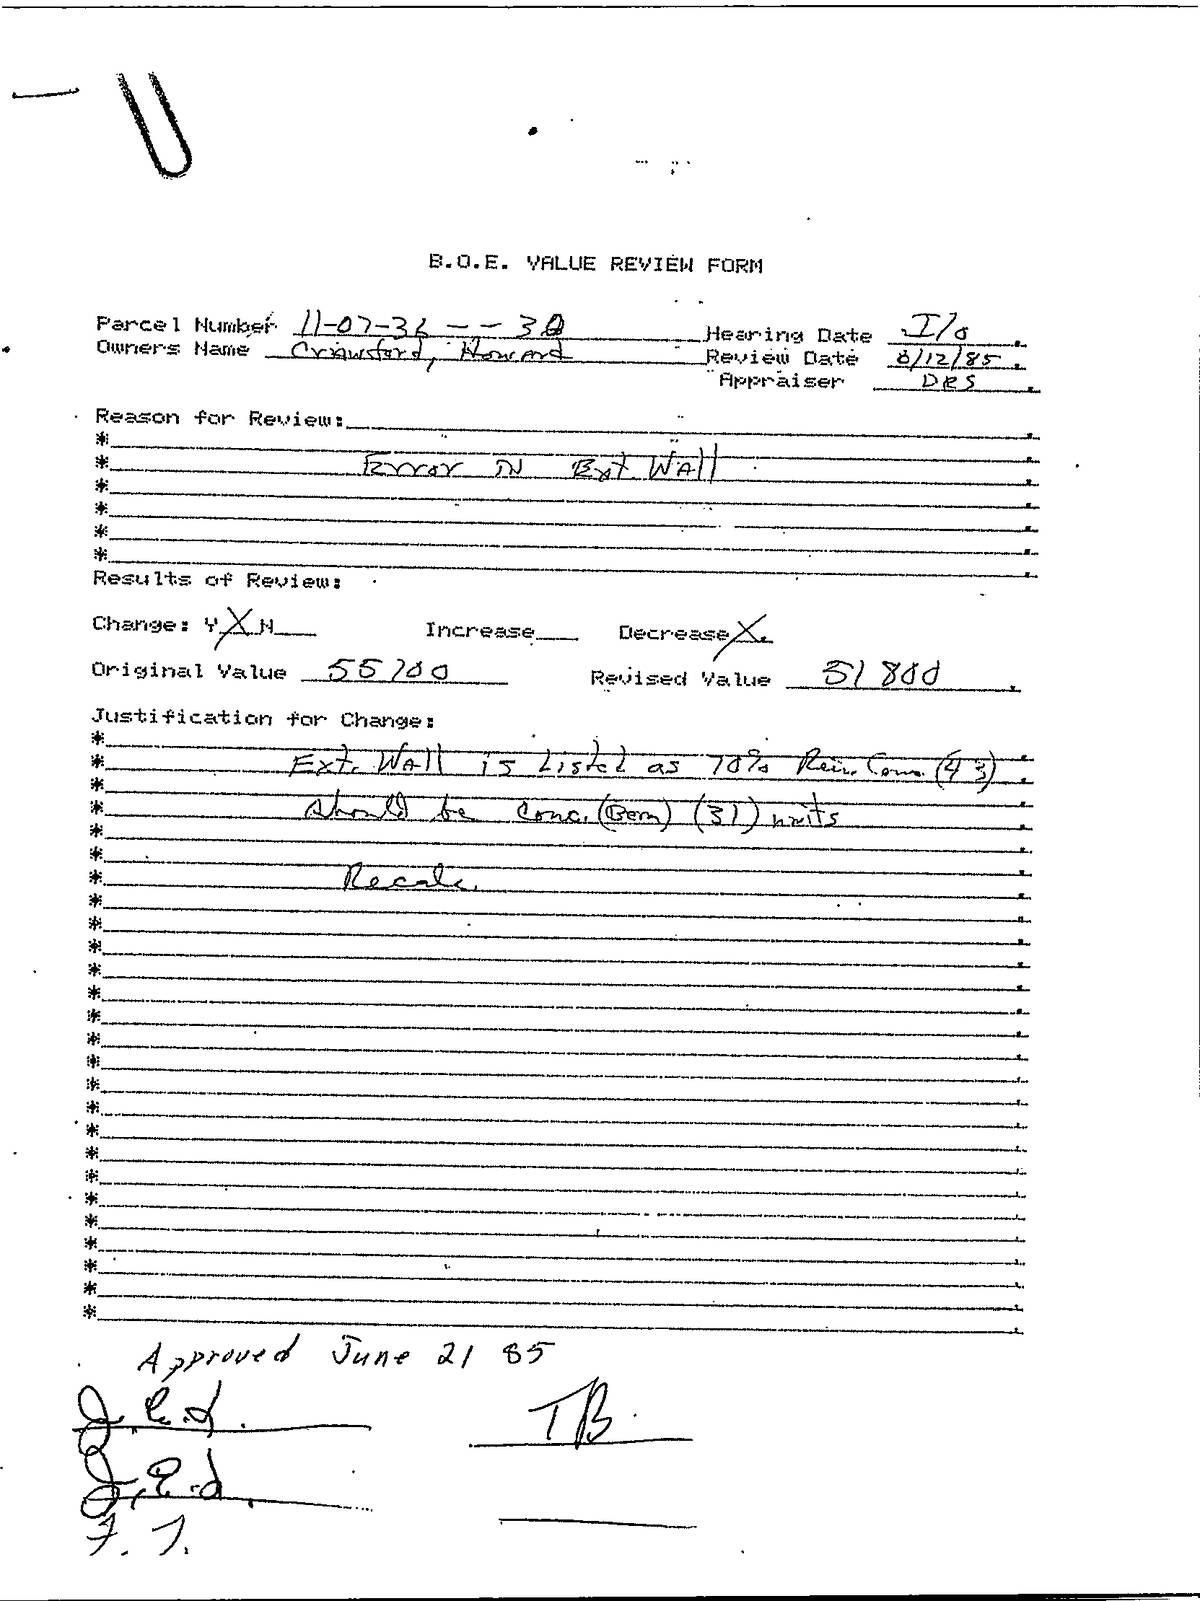 B.O.E. VALUE REVIEW FORM
Parcel Number 11-07-36 - - 30 Hearing Date I/o
Owners Name Crawford, Howard Review Date 6/12/85
Appraiser DRS
Reason for Review:
*
* Error IN Ext. WAll
*
*
*
*
Results of Review:
Change: Y X N Increase Decrease X
Original Value 55700 Revised Value 51800
Justification for Change:
*
* Ext. WAll is Listed as 70% Rein. Conc. (43)
*
* should be Conc. (Bern) (31) units
*
*
* Recalc.
*
*
*
*
*
*
*
*
*
*
*
*
*
*
*
*
*
*
*
Approved June 21 85
J. E. d. TB
J. E. d.
F. T.